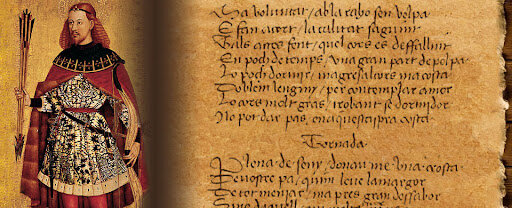 Sa voluntat / ab la rabo sen volpa
E fan acort / la calitat seguint
Tals actes fent / quel cors es deffallint
En poch de temps / vna gran part de polpa
Lo poch dormir / magresa al cors ma costa
Doblem lenginy / per contemplar amor
Lo cors molt gras / trobant se dormidor
No pot dar pas / en aquesta aspra costa
Tornada
Plena de seny / donau me vna crosta
Del vostre pa / quim leue lamargor
De tot menjar / ma pres gran desabor